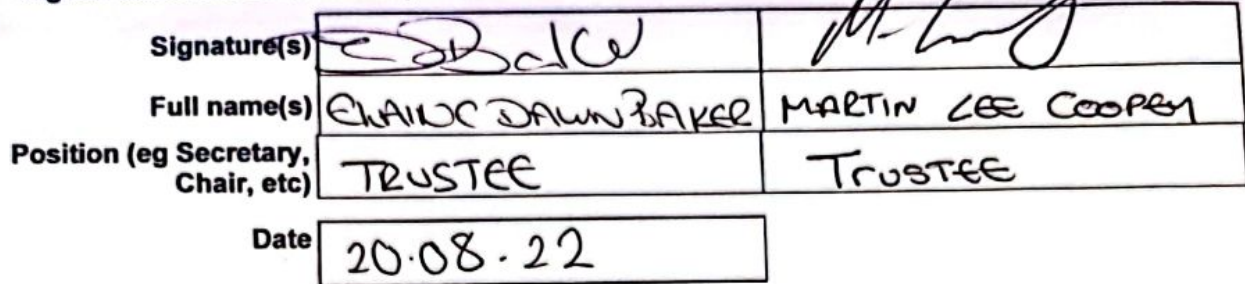 Signature(s)
Full name(s) ELAINE DAWN BAKER MARTIN LEE COOPER
Position (eg Secretary, TRUSTEE TRUSTEE
Chair, etc)
Date 20.08.22